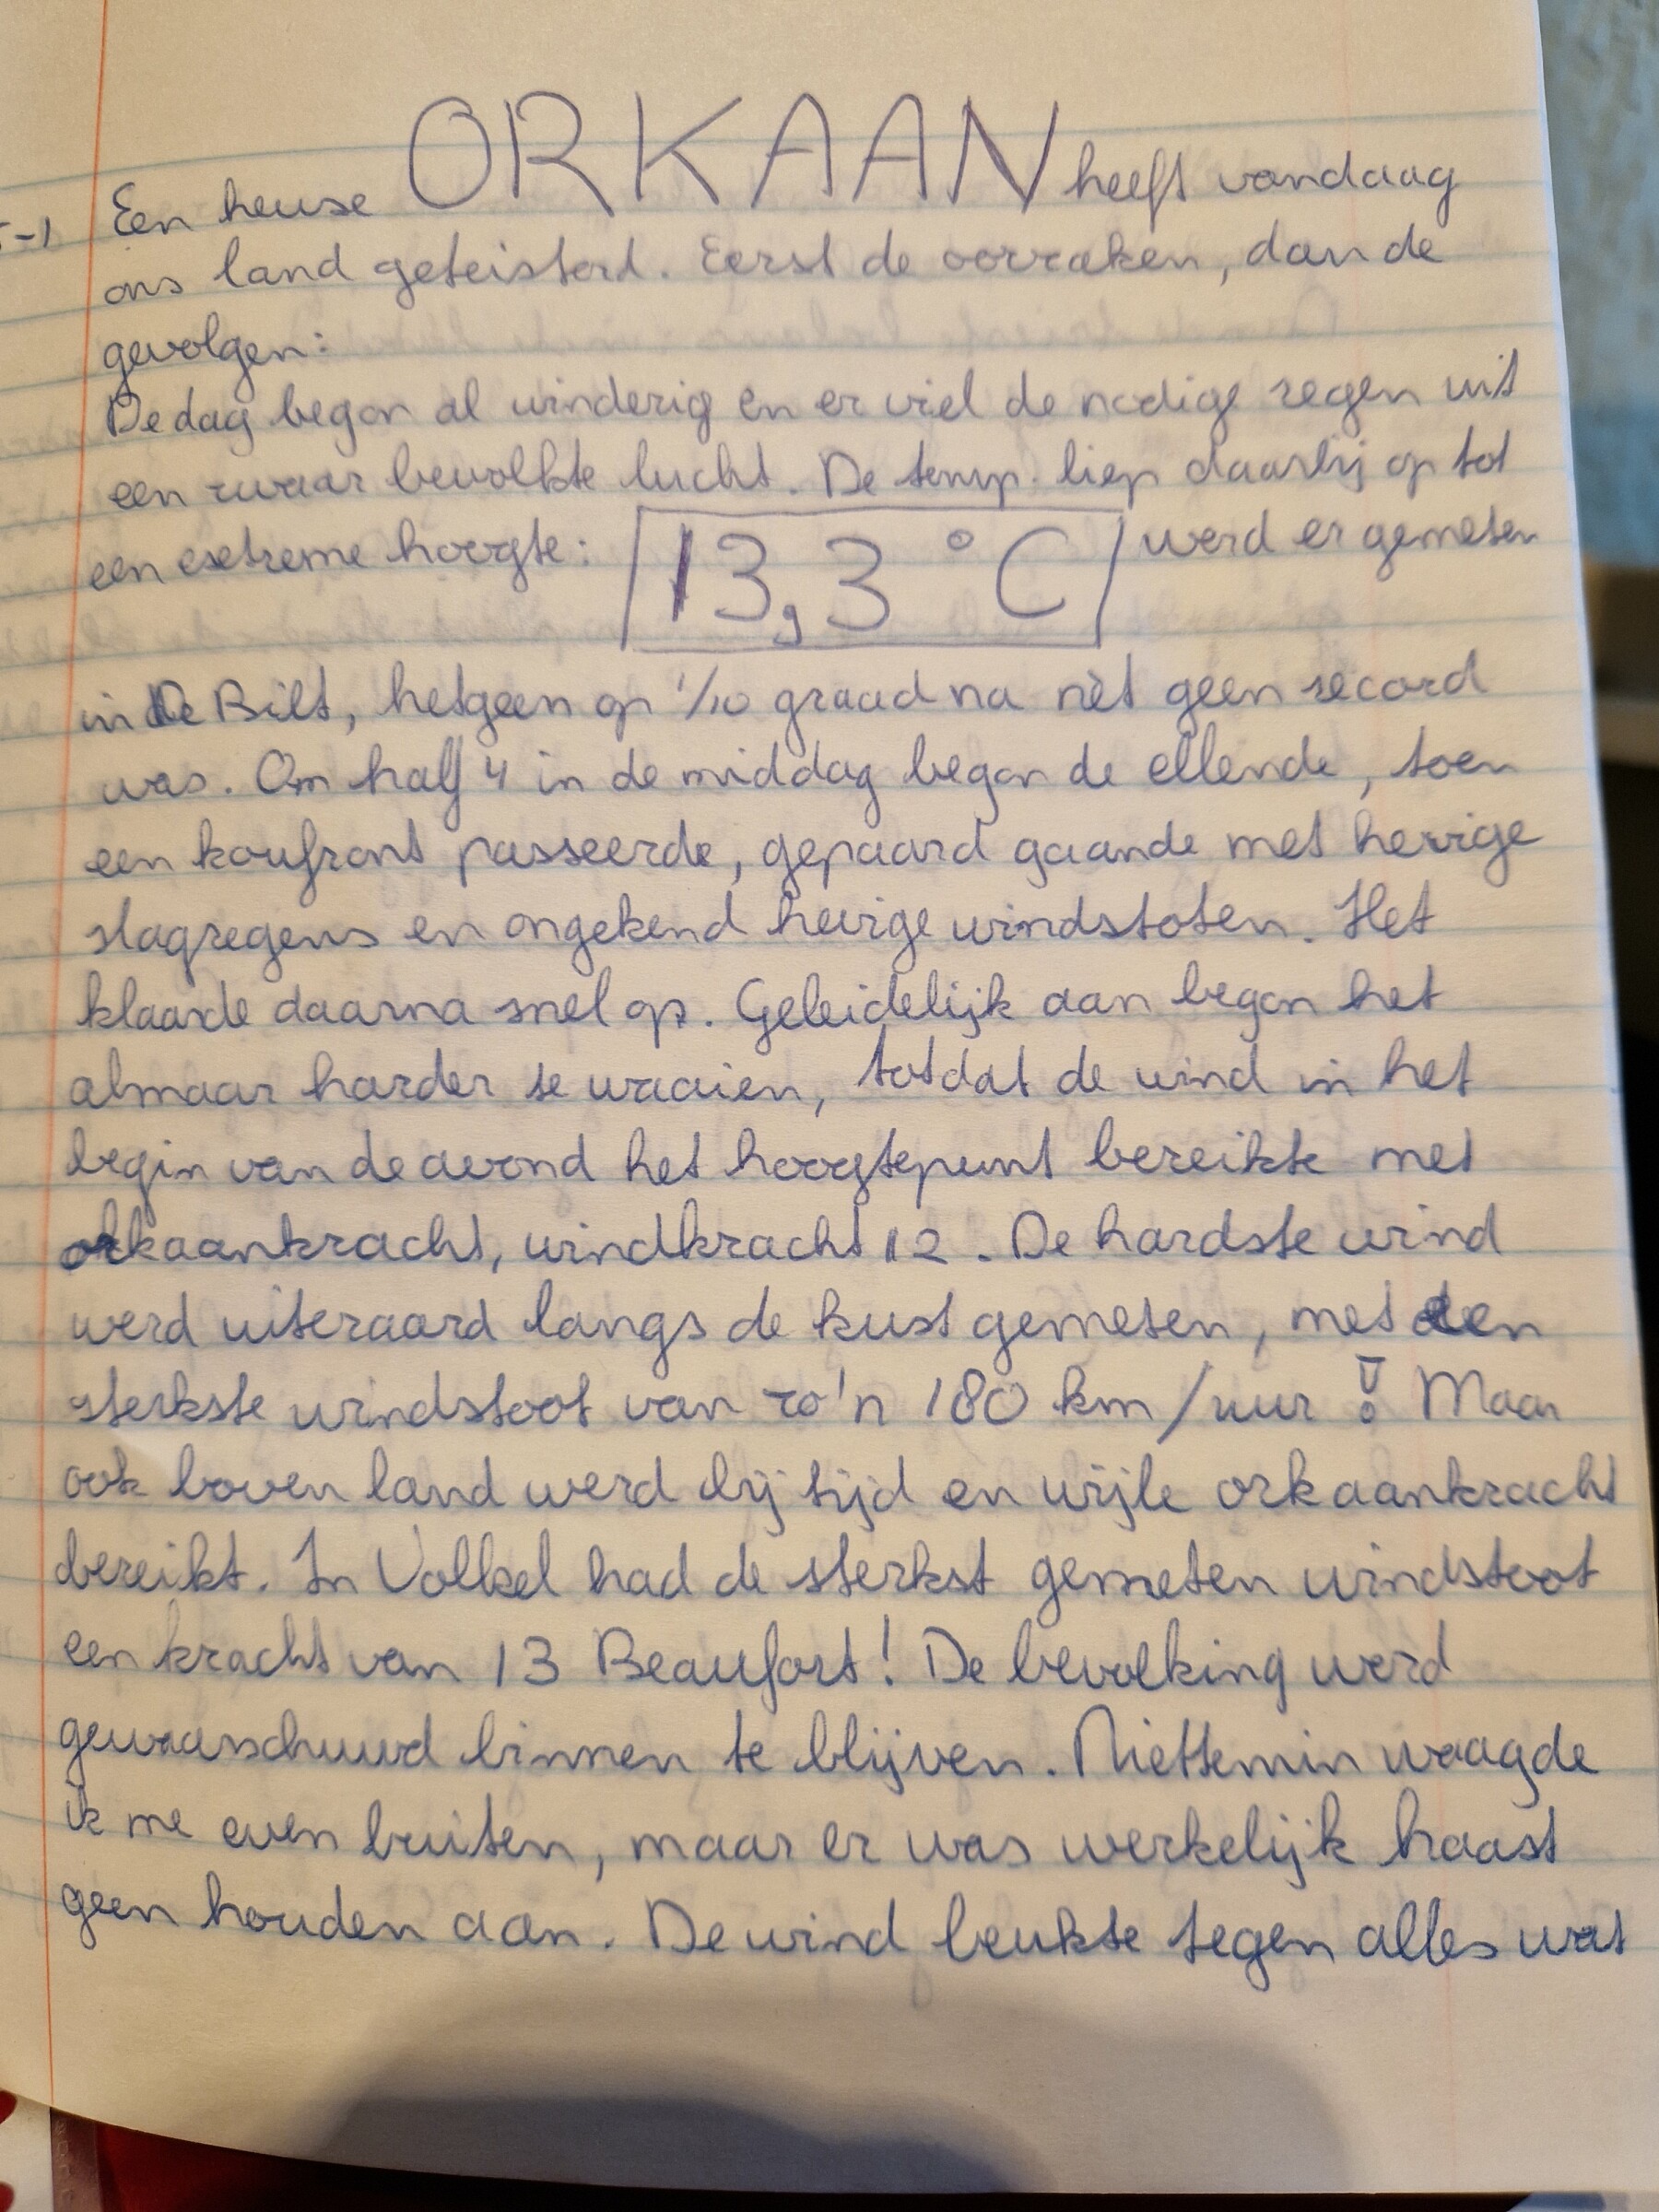 -1 Een heuse ORKAAN heeft vandaag
ons land geteisterd. Eerst de oorzaken, dan de
gevolgen:
De dag begon al winderig en er viel de nodige regen uit
een zwaar bevolkte lucht. De temp. liep daarbij op tot
een extreme hoogte: 13,3 °C werd er gemeten
in De Bilt, hetgeen op 1/10 graad na nèt geen record
was. Om half 4 in de middag begon de ellende, toen
een koufront passeerde, gepaard gaande met hevige
slagregens en ongekend hevige windstoten. Het
klaarde daarna snel op. Geleidelijk aan begon het
almaar harder te waaien, totdat de wind in het
begin van de avond het hoogtepunt bereikte met
orkaankracht, windkracht 12. De hardste wind
werd uiteraard langs de kust gemeten, met een
sterkste windstoot van zo'n 180 km/uur! Maar
ook boven land werd bij tijd en wijle orkaankracht
bereikt. In Volkel had de sterkst gemeten windstoot
een kracht van 13 Beaufort! De bevolking werd
gewaarschuwd binnen te blijven. Niettemin waagde
ik me even buiten, maar er was werkelijk haast
geen houden aan. De wind beukte tegen alles wat